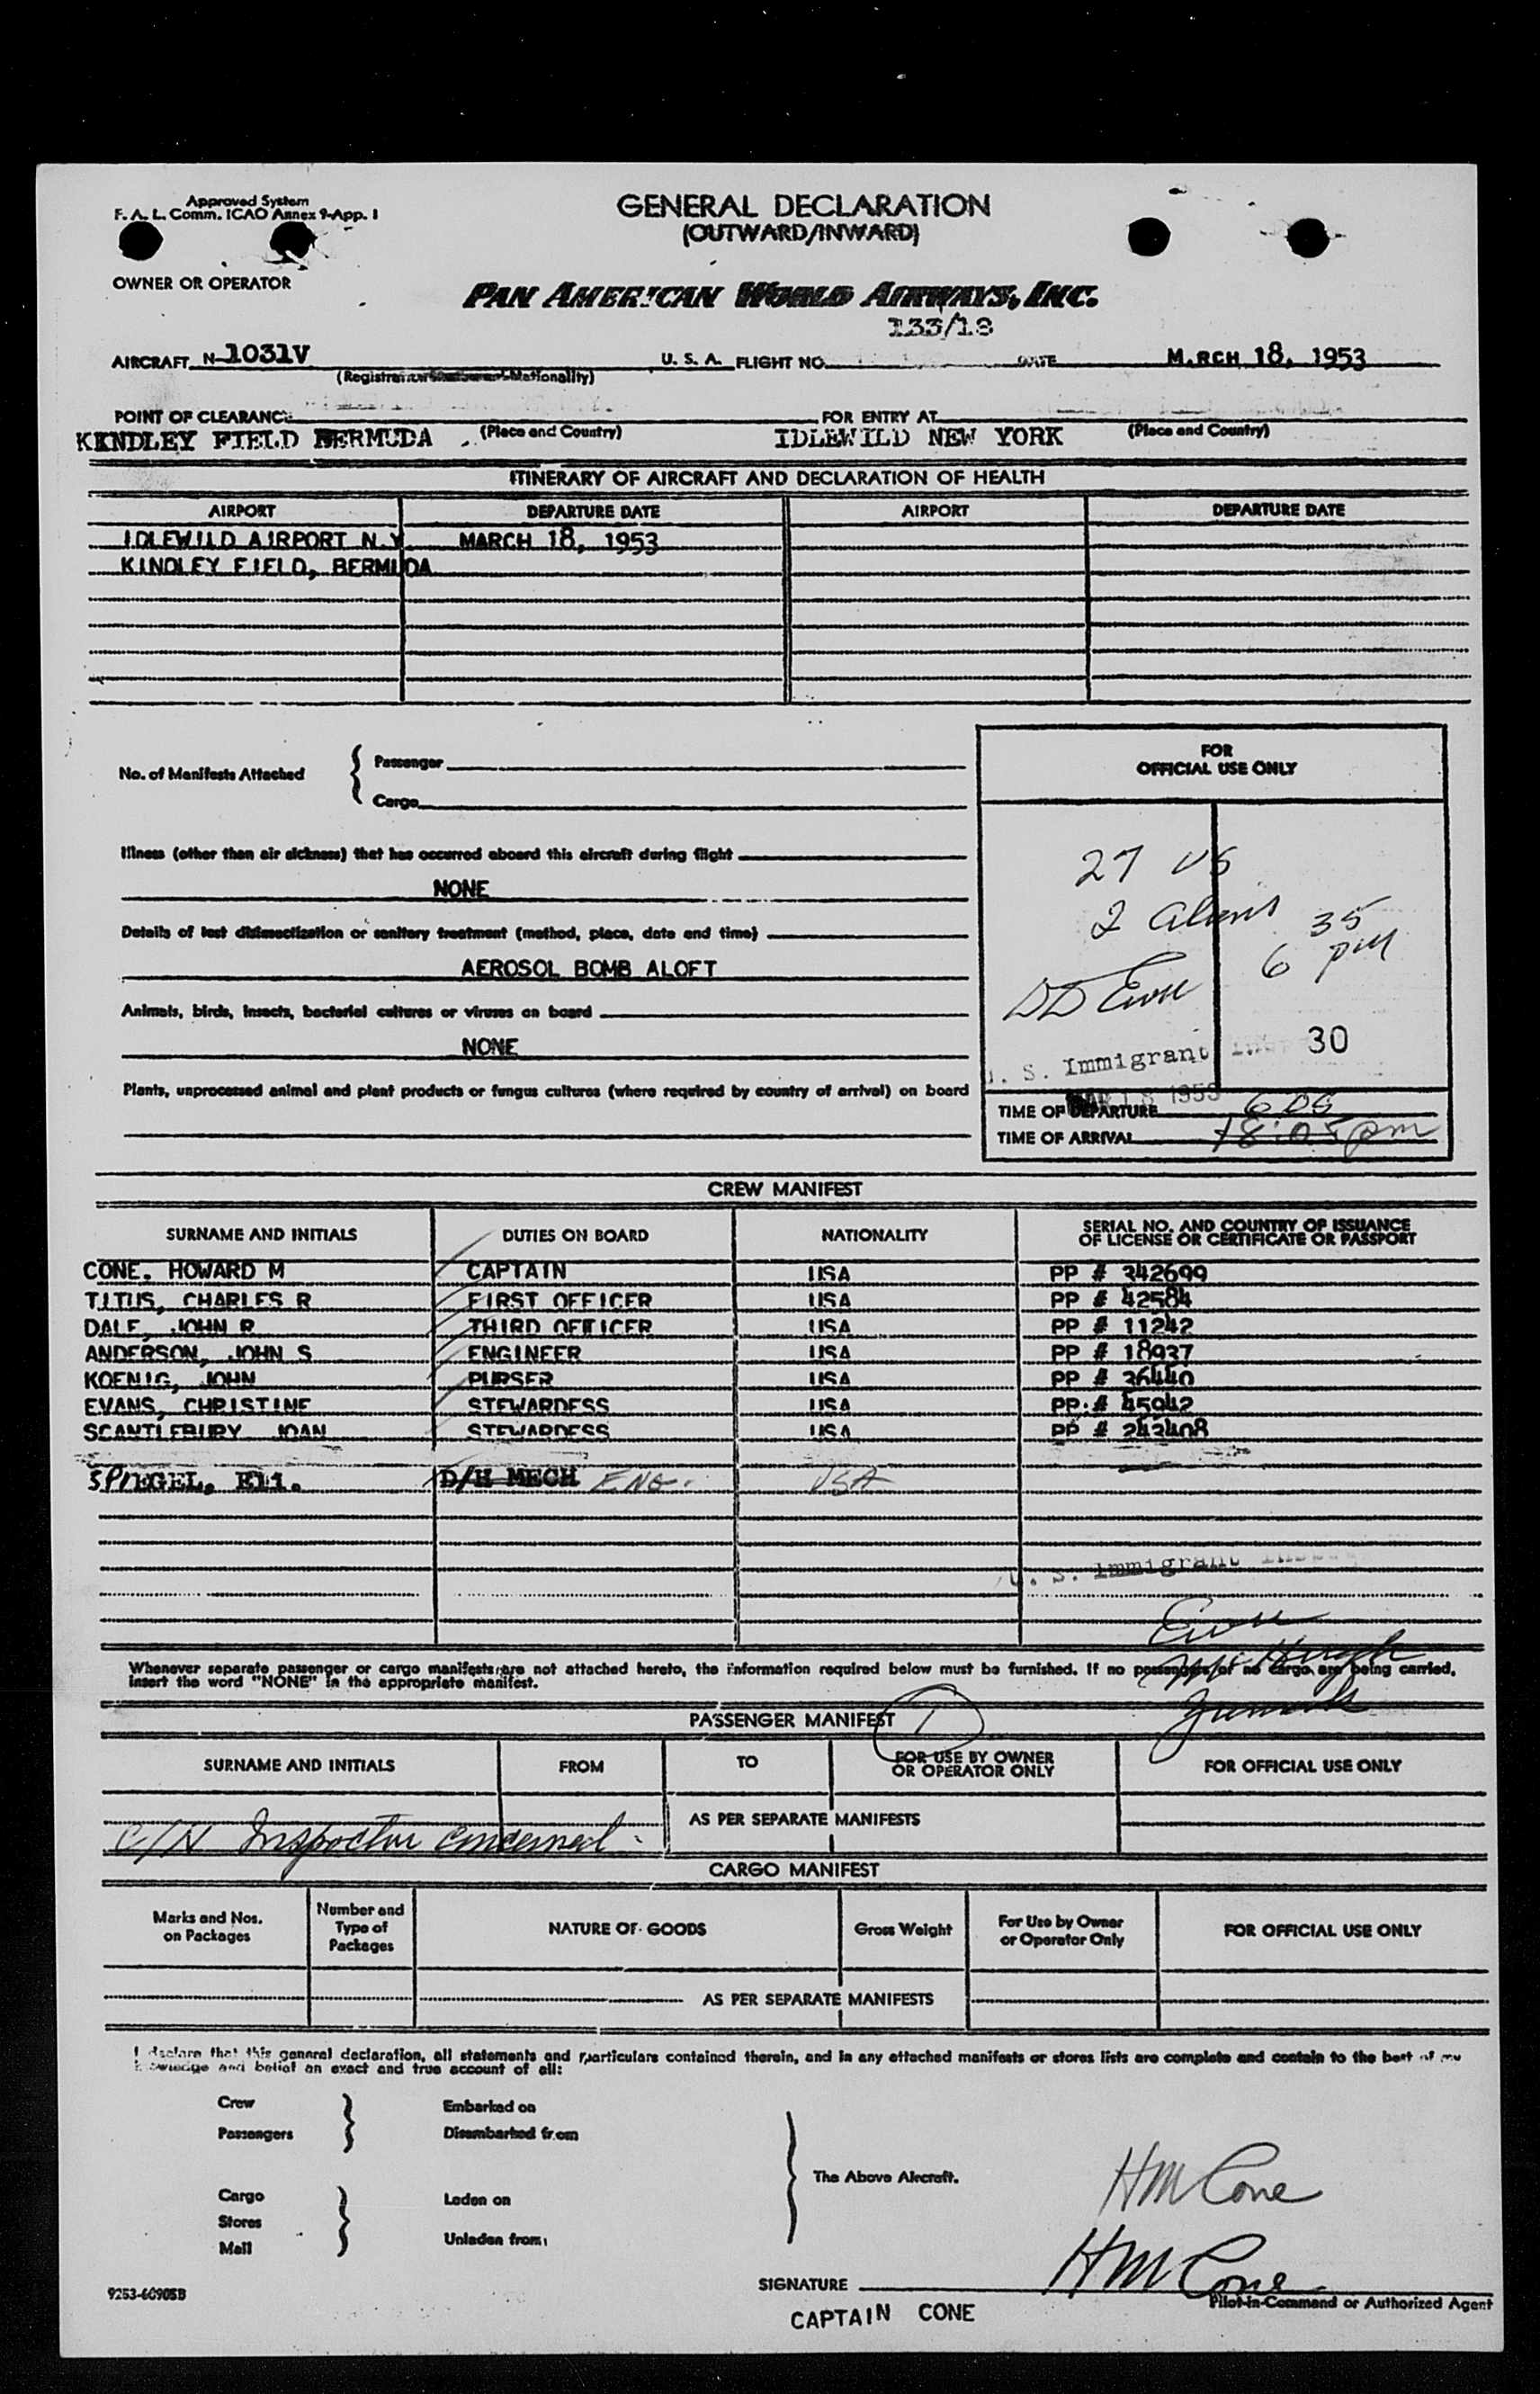 Approved System
F. A. L. Comm. ICAO Annex 9-App. 1
GENERAL DECLARATION
(OUTWARD/INWARD)
OWNER OR OPERATOR
PAN AMERICAN WORLD AIRWAYS, INC.
133/18
AIRCRAFT N-1031V U. S. A. FLIGHT NO. DATE MARCH 18, 1953
POINT OF CLEARANCE FOR ENTRY AT
KINDLEY FIELD BERMUDA (Place and Country) IDLEWILD NEW YORK (Place and Country)
ITINERARY OF AIRCRAFT AND DECLARATION OF HEALTH
AIRPORT DEPARTURE DATE AIRPORT DEPARTURE DATE
IDLEWILD AIRPORT N.Y. MARCH 18, 1953
KINDLEY FIELD, BERMUDA
FOR
OFFICIAL USE ONLY
No. of Manifests Attached { Passenger
Cargo
Illness (other than air sickness) that has occurred aboard this aircraft during flight
NONE
Details of last disinsectization or sanitary treatment (method, place, date and time)
AEROSOL BOMB ALOFT
Animals, birds, insects, bacterial cultures or viruses on board
NONE
Plants, unprocessed animal and plant products or fungus cultures (where required by country of arrival) on board
27 US
2 aliens
35
6 pm
30
U. S. Immigrant
MAR 18 1953
TIME OF DEPARTURE 6 05
TIME OF ARRIVAL 18:05 pm
CREW MANIFEST
SURNAME AND INITIALS DUTIES ON BOARD NATIONALITY SERIAL NO. AND COUNTRY OF ISSUANCE
OF LICENSE OR CERTIFICATE OR PASSPORT
CONE, HOWARD M CAPTAIN USA PP # 342699
TITUS, CHARLES R FIRST OFFICER USA PP # 42584
DALE, JOHN R THIRD OFFICER USA PP # 11242
ANDERSON, JOHN S ENGINEER USA PP # 18937
KOENIG, JOHN PURSER USA PP # 36440
EVANS, CHRISTINE STEWARDESS USA PP # 45942
SCANTLEBURY JOAN STEWARDESS USA PP # 243408
SPIEGEL, Eli. D/H MECH ENG. USA
U. S. Immigrant
Whenever separate passenger or cargo manifests are not attached hereto, the information required below must be furnished. If no passengers/or no cargo are being carried,
insert the word "NONE" in the appropriate manifest.
PASSENGER MANIFEST
SURNAME AND INITIALS FROM TO FOR USE BY OWNER
OR OPERATOR ONLY FOR OFFICIAL USE ONLY
AS PER SEPARATE MANIFESTS
Inspector concerned
CARGO MANIFEST
Marks and Nos.
on Packages
Number and
Type of
Packages
NATURE OF GOODS
Gross Weight
For Use by Owner
or Operator Only
FOR OFFICIAL USE ONLY
AS PER SEPARATE MANIFESTS
I declare that this general declaration, all statements and particulars contained therein, and in any attached manifests or stores lists are complete and contain to the best of my
knowledge and belief an exact and true account of all:
Crew
Passengers
Embarked on
Disembarked from
The Above Aircraft.
Cargo
Stores
Mail
Laden on
Unladen from:
HM Cone
HM Cone
9253-60905B
SIGNATURE
Pilot-in-Command or Authorized Agent
CAPTAIN CONE